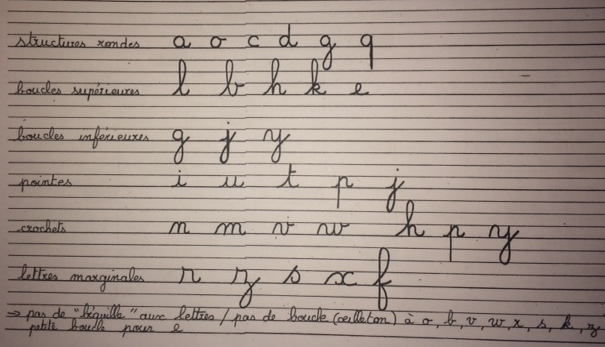 structures rondes a o c d g q
boucles supérieures l b h k e
boucles inférieures g j y
pointes i u t p j
crochets n m v w h p y
lettres marginales r z s x f
→ pas de "béquille" aux lettres / pas de boucle (œilleton) à o, b, v, w, r, s, k, z
petite boucle pour e